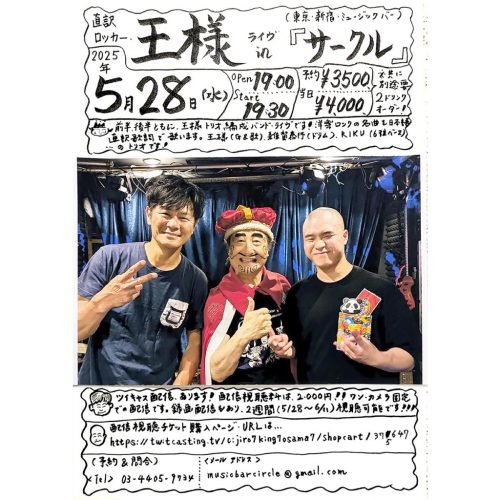 直訳ロッカー・王様ライヴin『サークル』(東京・新宿・ミュージックバー)
2025年
5月28日(水)
Open 19:00
Start 19:30
予約¥3500
当日¥4,000
※共に別途要2ドリンクオーダー!
前半、後半ともに、王様トリオ編成バンド・ライヴです!洋楽ロックの名曲を日本語
直訳歌詞で歌います。王様(G&歌)、(ドラム)、RIKU(6弦ベース)
…のトリオです!
ツイキャス配信、あります!配信視聴料は、2,000円!!ワン・カメラ固定
での配信です。録画配信もあり、2週間(5/28〜6/11)視聴可能です!!!
配信視聴チケット購入ページ・URLは…
https://twitcasting.tv/c:jiro7king7osama7/shopcart/
(予約&問合)
<Tel> 03-4405-9734
<メールアドレス>
musicbarcircle@gmail.com